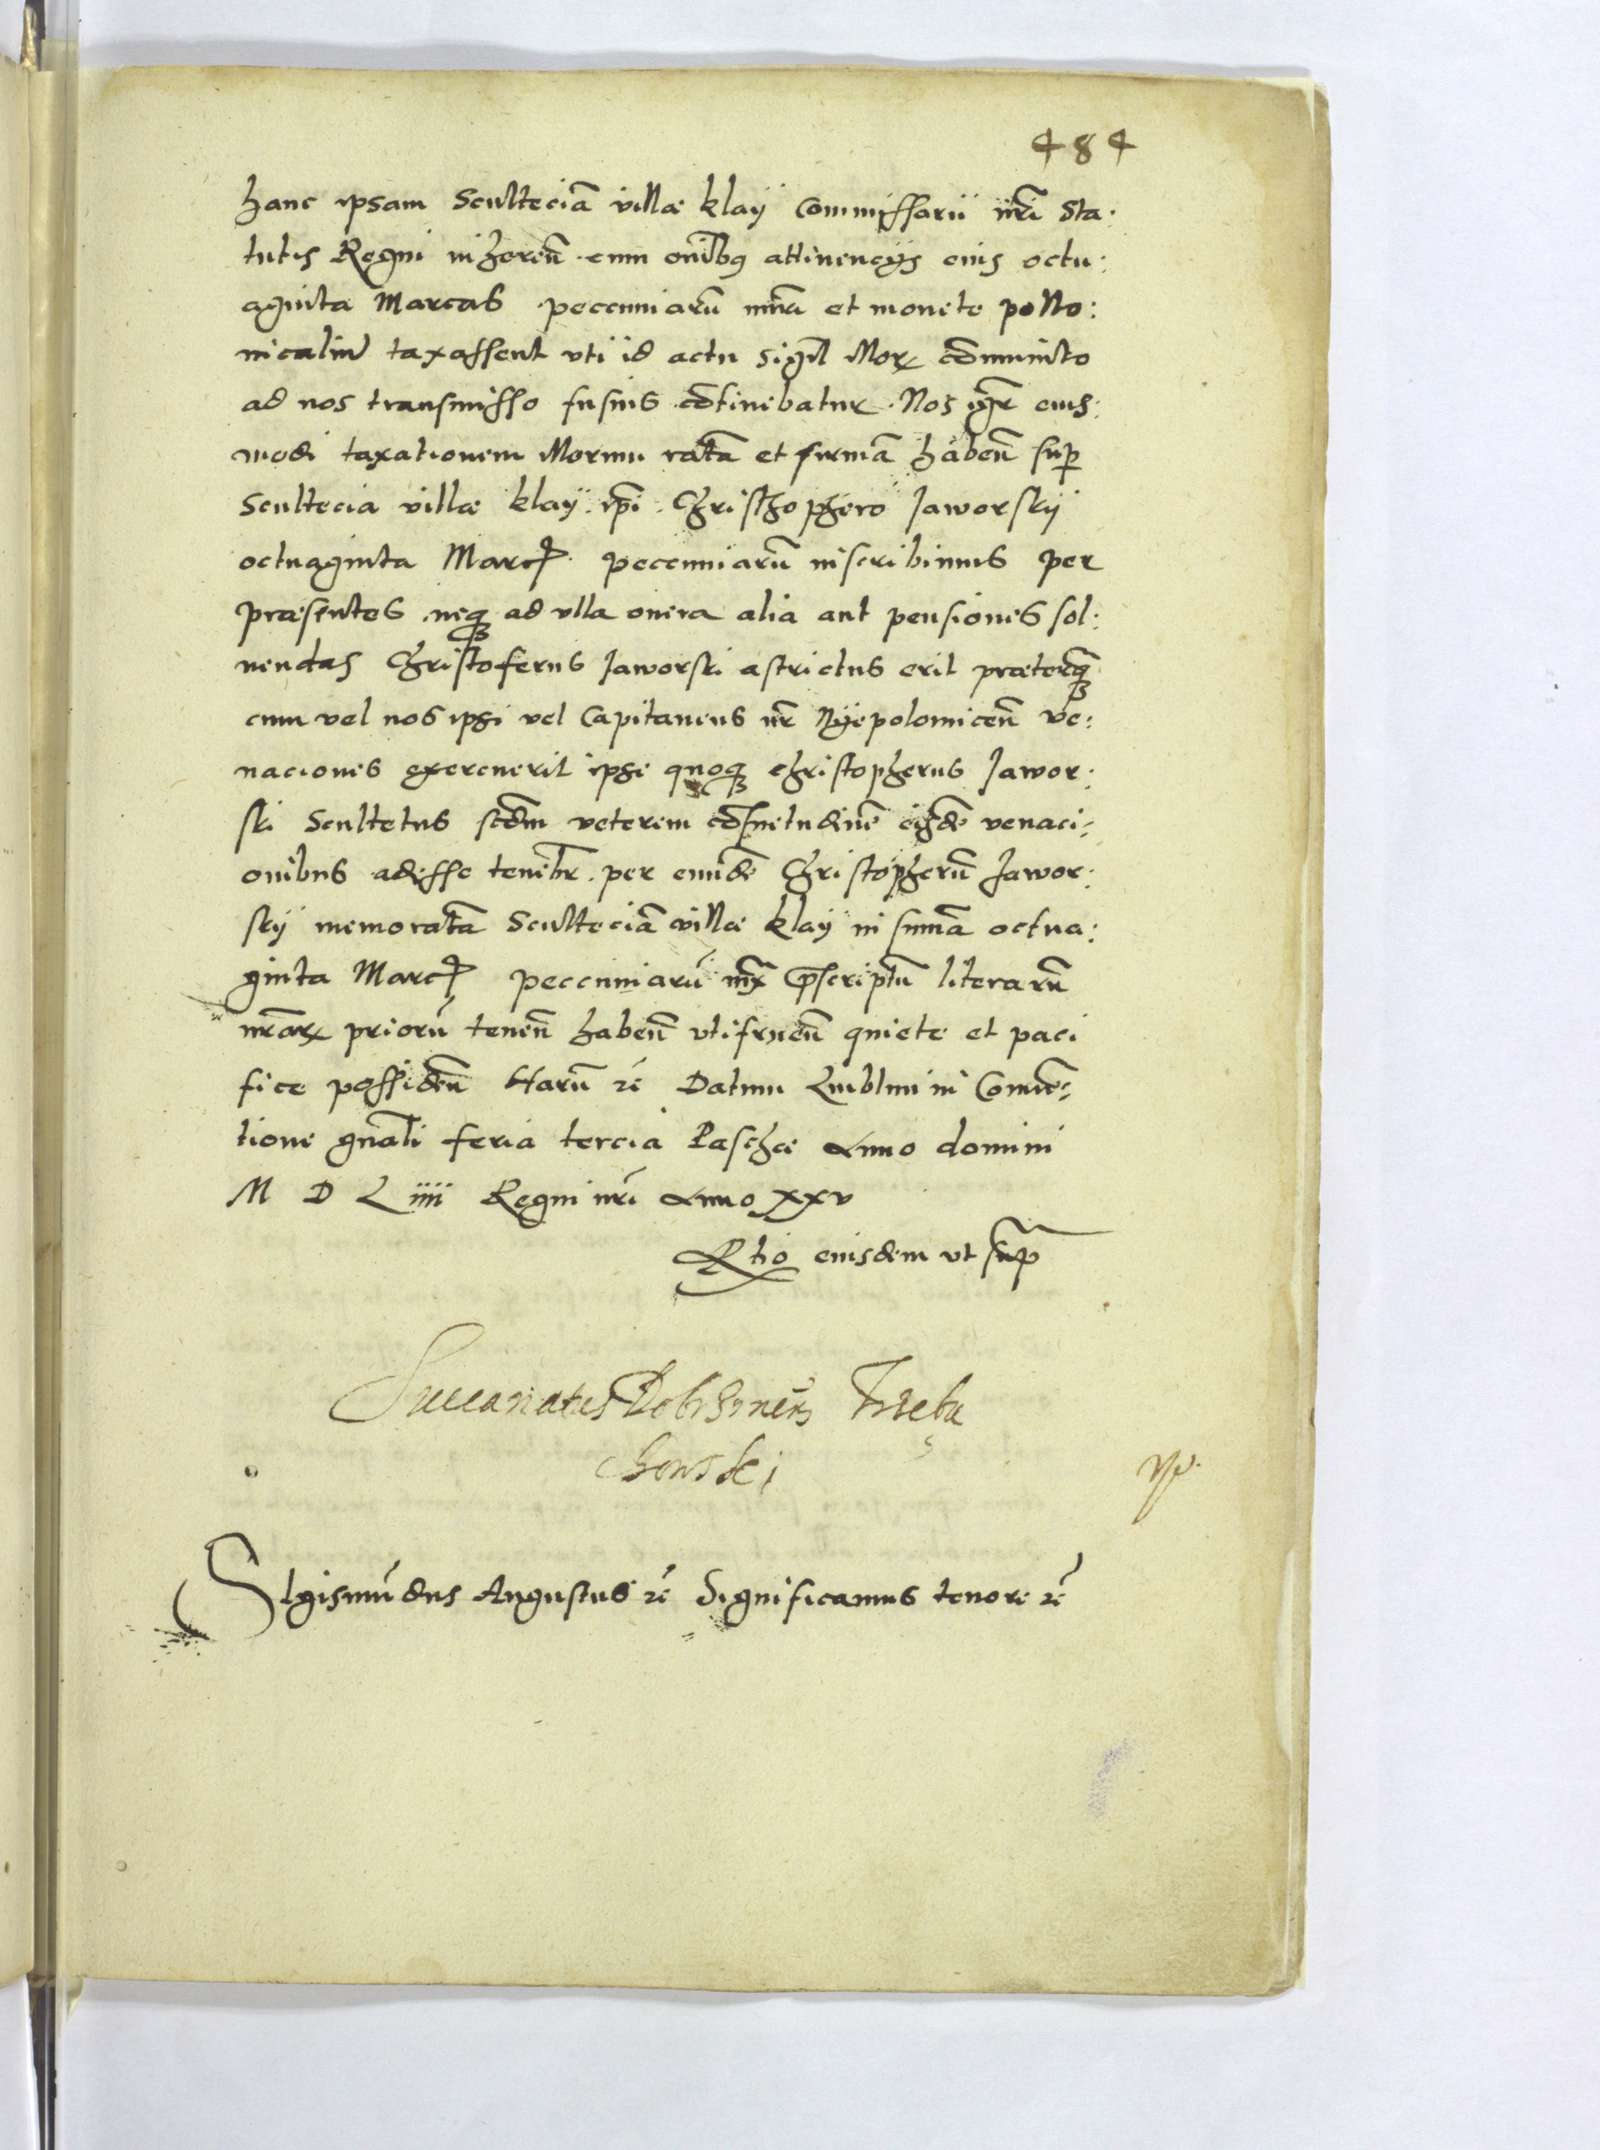 484
hanc ipsam Sculteciã villæ klaÿ Commissarii nr̃i Sta:
tutis Regni inherẽn cum om̃ibq attinencÿs eius octu:
aginta Marcas peccuniarũ nr̃ri et monete pollo:
nicaliũ taxassent vti id actu sigil̃ illorꝝ cõmunito
ad nos transmisso fusius cõtinebatur. Nos igr̃ eius:
modi taxationem illorum ratã et firmã habeñ sup̃
Scultecia villæ klaÿ ip̃i Christhophero Jaworskÿ
octuaginta Marcꝭ peccuniarũ inscribimus per
præsentes neqꝫ ad vlla onera alia aut pensiones sol:
uendas Christoferus Jaworski astrictus erit præterqꝫ
cum vel nos ipsi vel Capitaneus nr̃ Nÿepolomiceñ ve:
naciones exercuerit ipse quoqꝫ christopherus Jawor:
ski Scultetus scd̃m veterem cõsuetudinẽ eisdẽ venaci:
onibus adesse tenebr̃. per eundẽ Christopherũ Jawor:
skÿ memoratã Sculteciã villæ klaÿ in sum̃a octua:
ginta Marcꝭ peccuniarũ iux̃ p̃scriptũ literarũ
nr̃arꝝ priorũ teneñ habeñ vtifrueñ quiete et paci
fice possideñ Harũ rẽ Datum Lublini in Conuẽ:
tione gñali feria tercia Paschæ Anno domini
M D L iiii Regni nr̃i Anno xxv
Rtio eiusdem ut sup̃
Succanatus Dobrzineñs Trzebu
chowski
Sigismũdus Augustus rẽ Significamus tenore rẽ